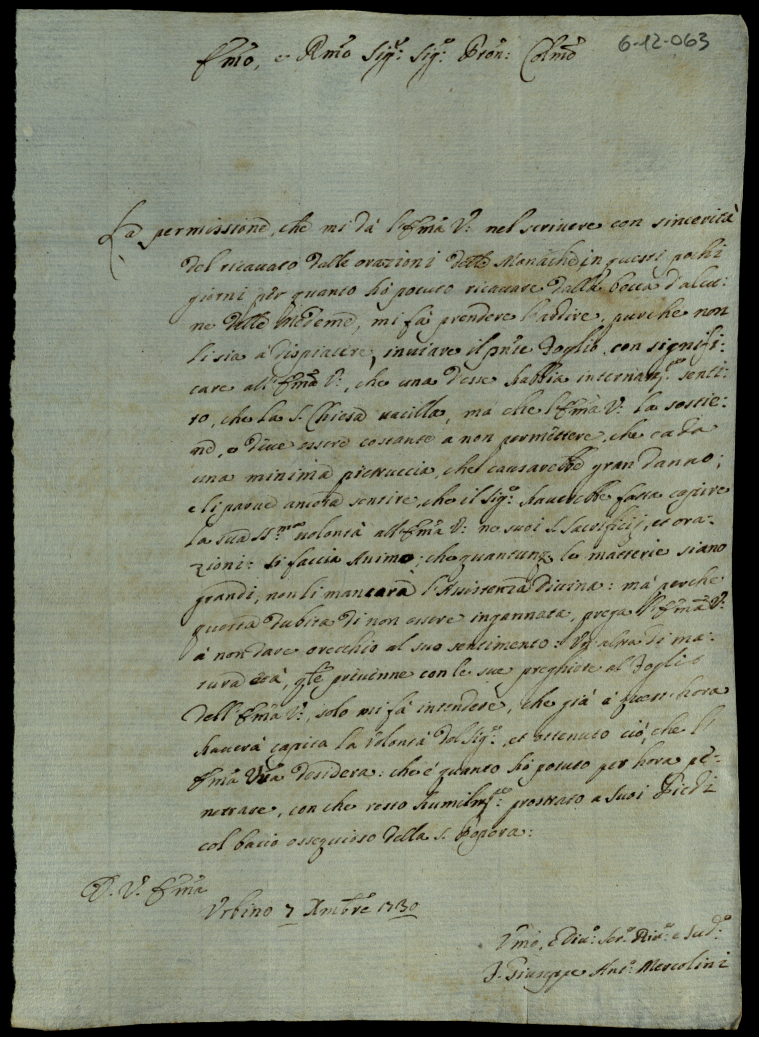 6-12-063
Em̃o, e Rm̃o Sig.r Sig.r Pron: Colmõ
La permissione, che mi dà l'Em̃a V.a nel scrivere con sincerità
del ricavato dalle orazioni delle Monache in questi pochi
giorni per quanto hò potuto ricavare dalla bocca d'alcu-
ne delle Medeme, mi fà prendere l'ardire, purche non
li sia à dispiacere, inviare il pñte Foglio, con signifi-
care all'Em̃a V.a, che una d'esse habbia internam.te senti-
to, che la S. Chiesa vacilla, ma che l'Em̃a V.a la sostie-
ne, e deve essere costante a non permettere, che cada
una minima pietruccia, che causarebbe gran danno;
e li parve ancora sentire, che il Sig.re haverebbe fatta capire
la sua SS.ma volontà all'Em̃a V.a ne suoi S. Sacrifizij, et ora-
zioni: si faccia Animo, che quantunq le materie siano
grandi, non li mancarà l'Assistenza Divina: mà perche
questa dubita di non essere ingannata, prega l'Em̃a V.a
à non dare orecchio al suo sentimento: Un altra di ma-
tura età, qle privinne con le sue preghiere al Foglio
dell'Em̃a V.a, solo mi fà intendere, che già a quest'hora
haverà capita la Volontà del Sig.re, et ottenuto ciò, che l'
Em̃a Vr̃a desidera: che è quanto hò potuto per hora pe-
netrare, con che resto humilm.te prostrato a Suoi Piedi
col bacio ossequioso della S. Porpora:
D. V.a Em̃a
Urbino 7 Xmbre 1730
Umo, e Div: Ser.e Riv.o e Sud.o
F. Giuseppe Ant.o Mercolini